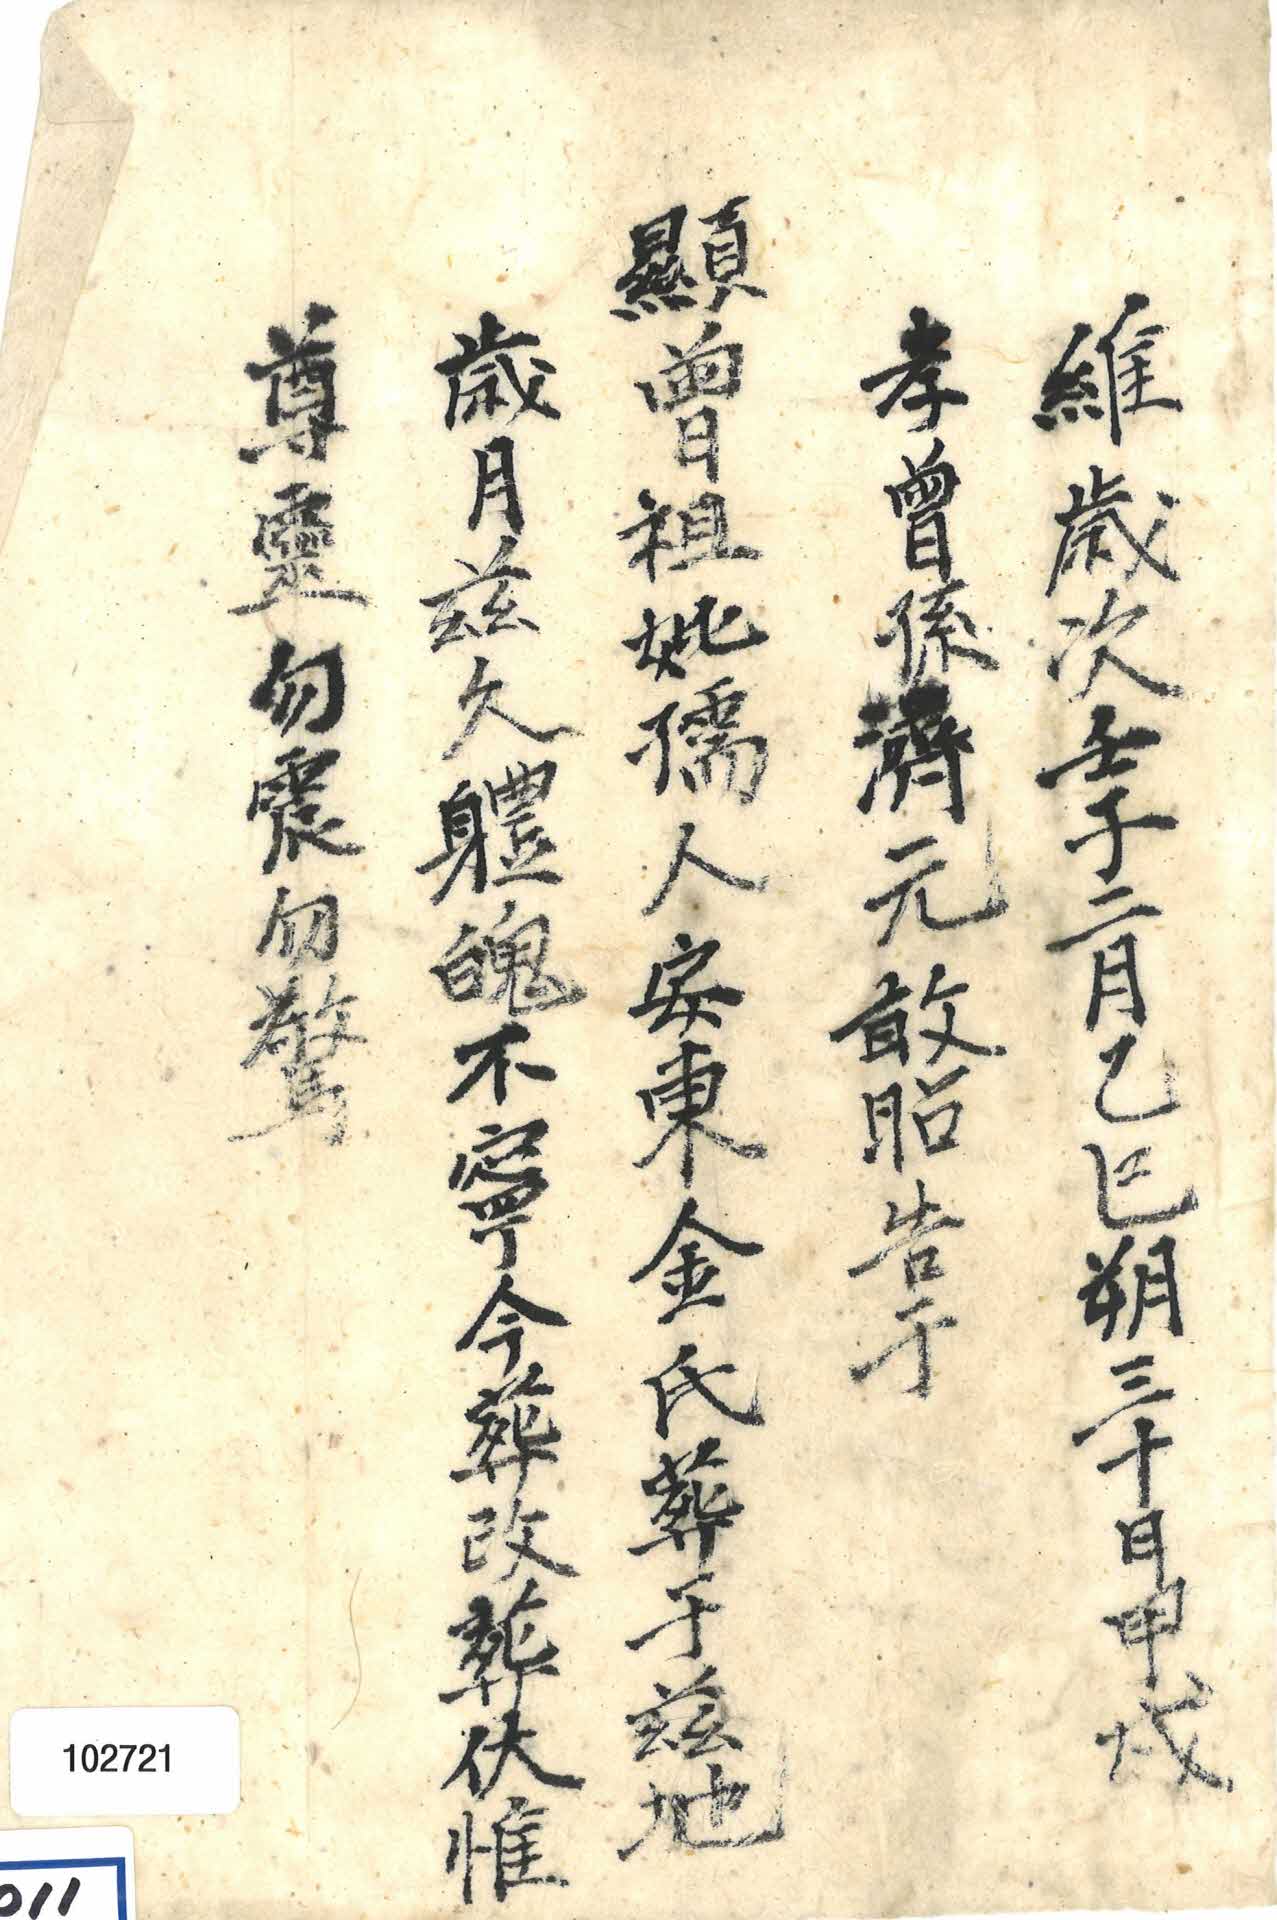 維歲次壬子二月乙巳朔三十日甲戌
孝曾孫濟元敢昭告于
顯曾祖妣孺人安東金氏葬于玆地
歲月玆久軆魄不寧今葬改葬伏惟
尊靈勿震勿驚
102721
011